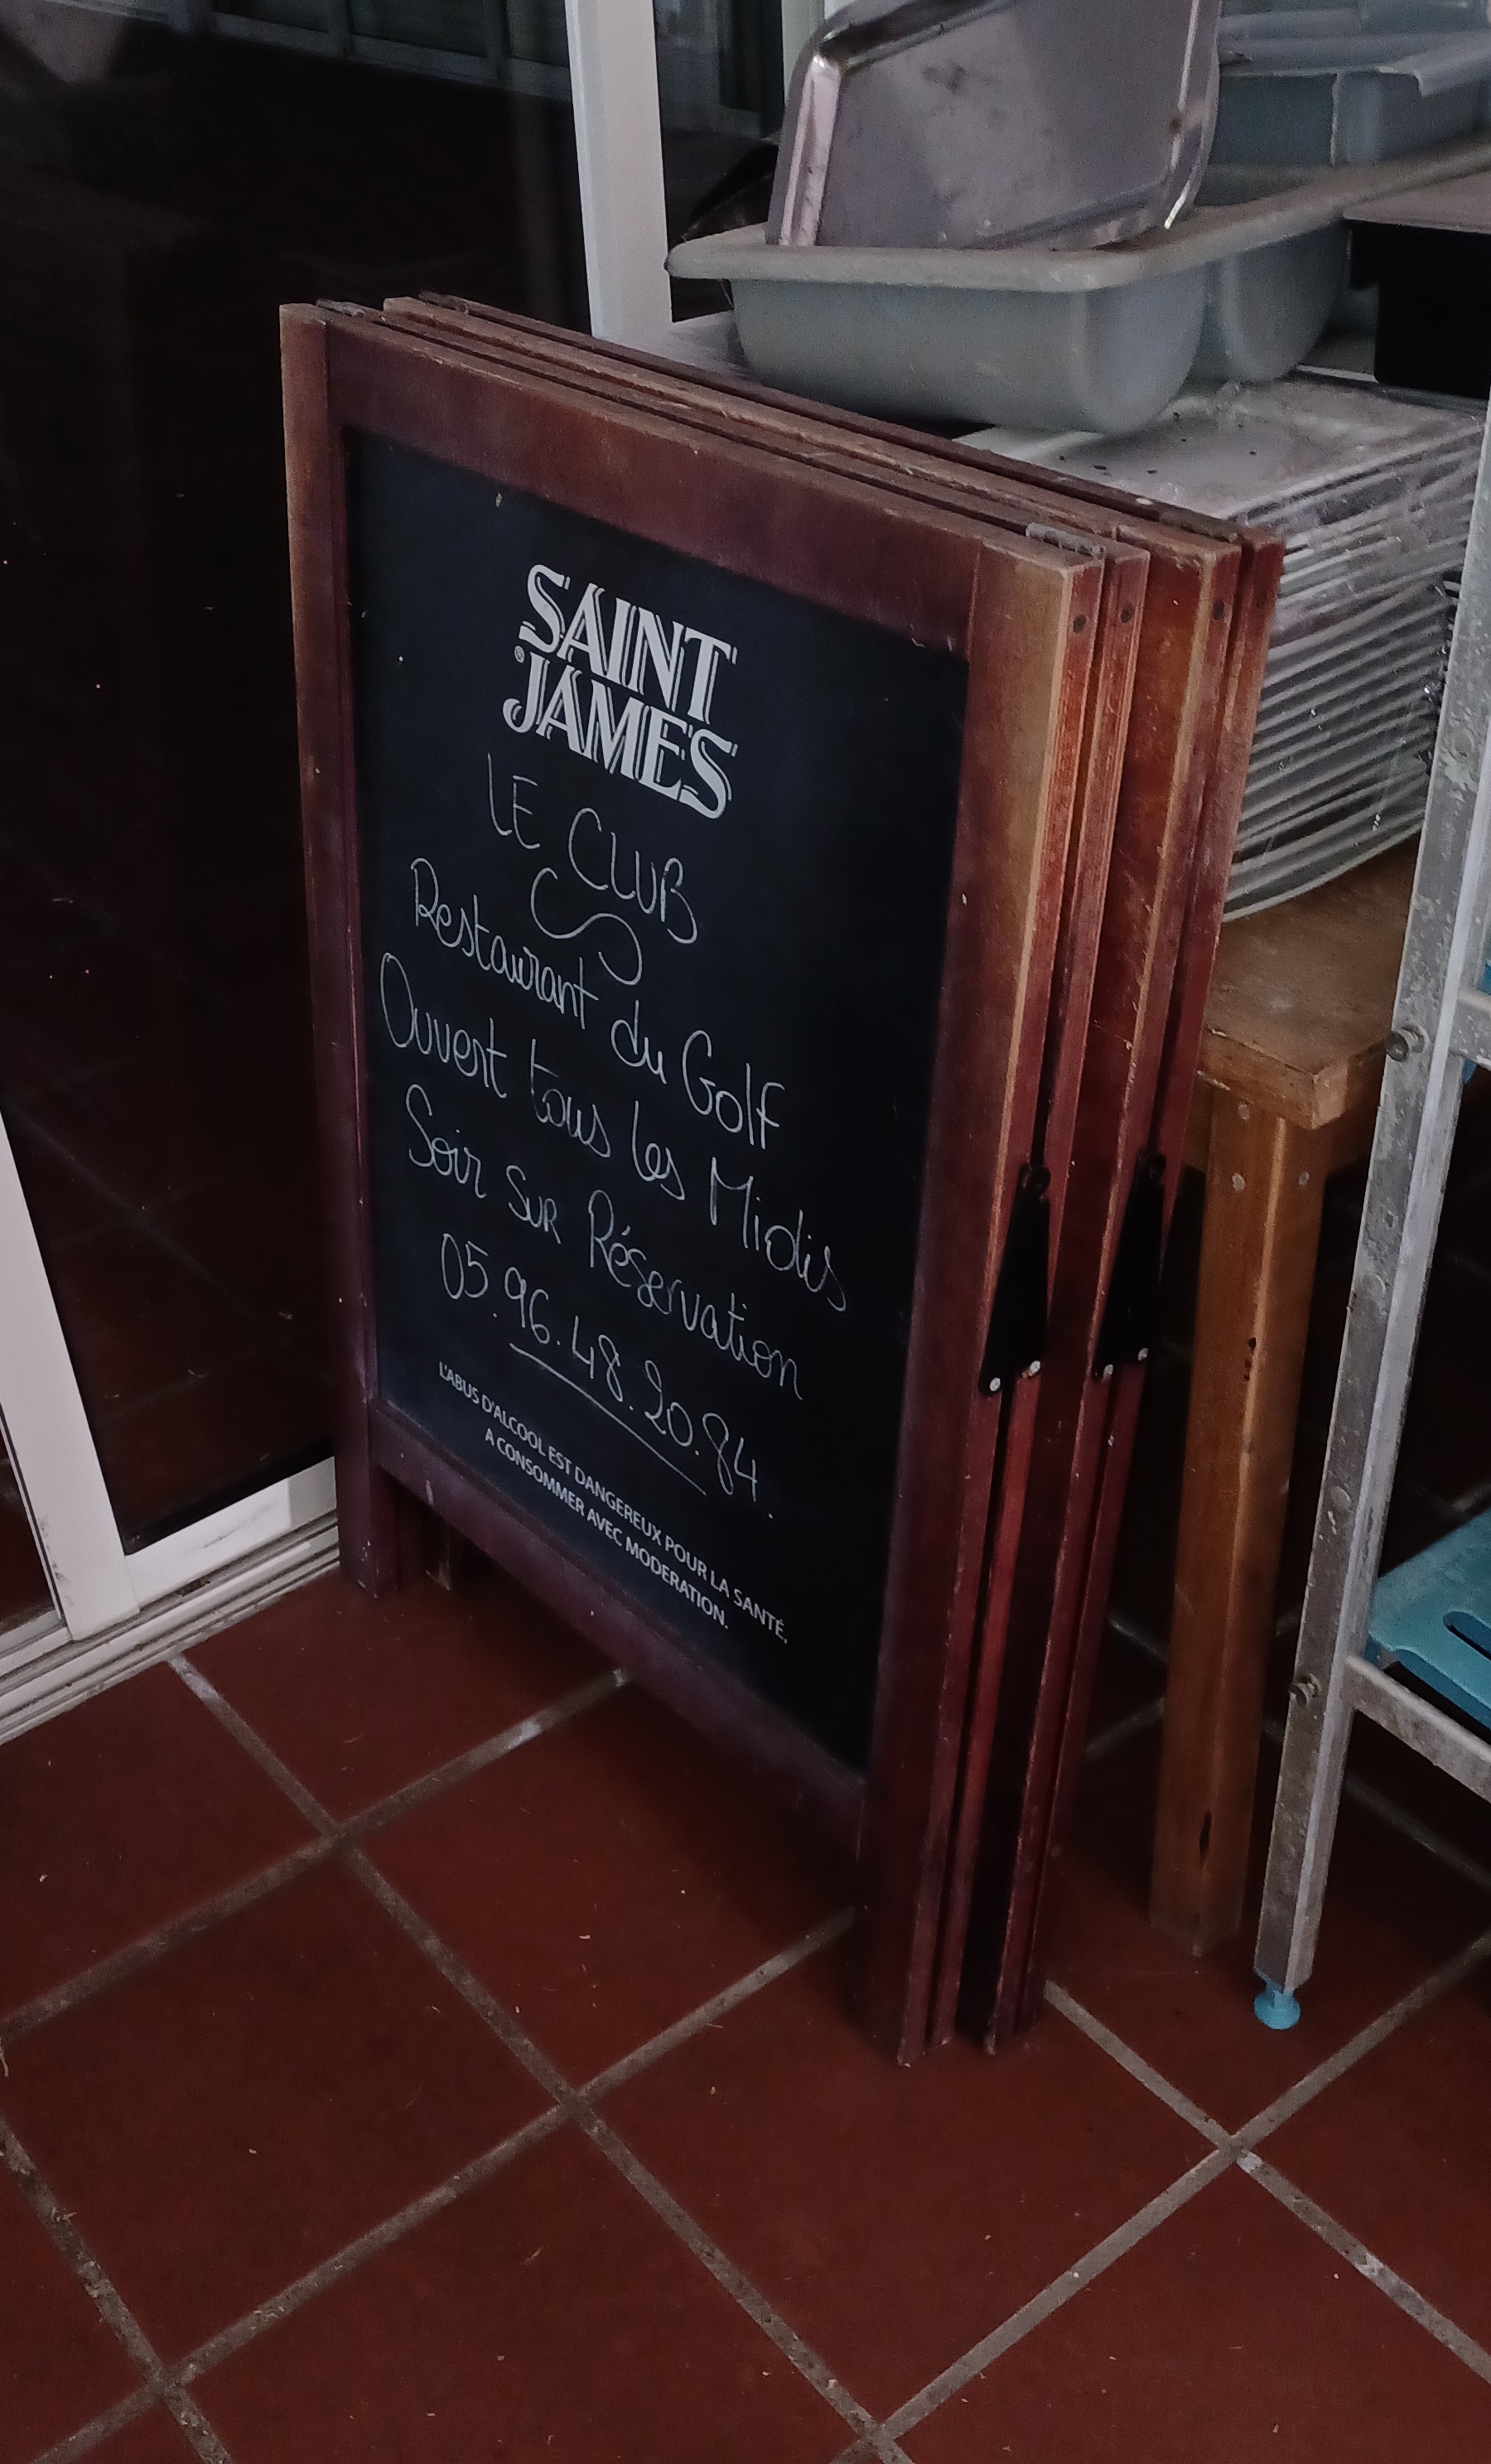 SAINT
JAMES
LE CLUB
Restaurant du Golf
Ouvert tous les Midis
Soir SUR Réservation
05.96.48.20.84.
L'ABUS D'ALCOOL EST DANGEREUX POUR LA SANTÉ,
A CONSOMMER AVEC MODERATION.